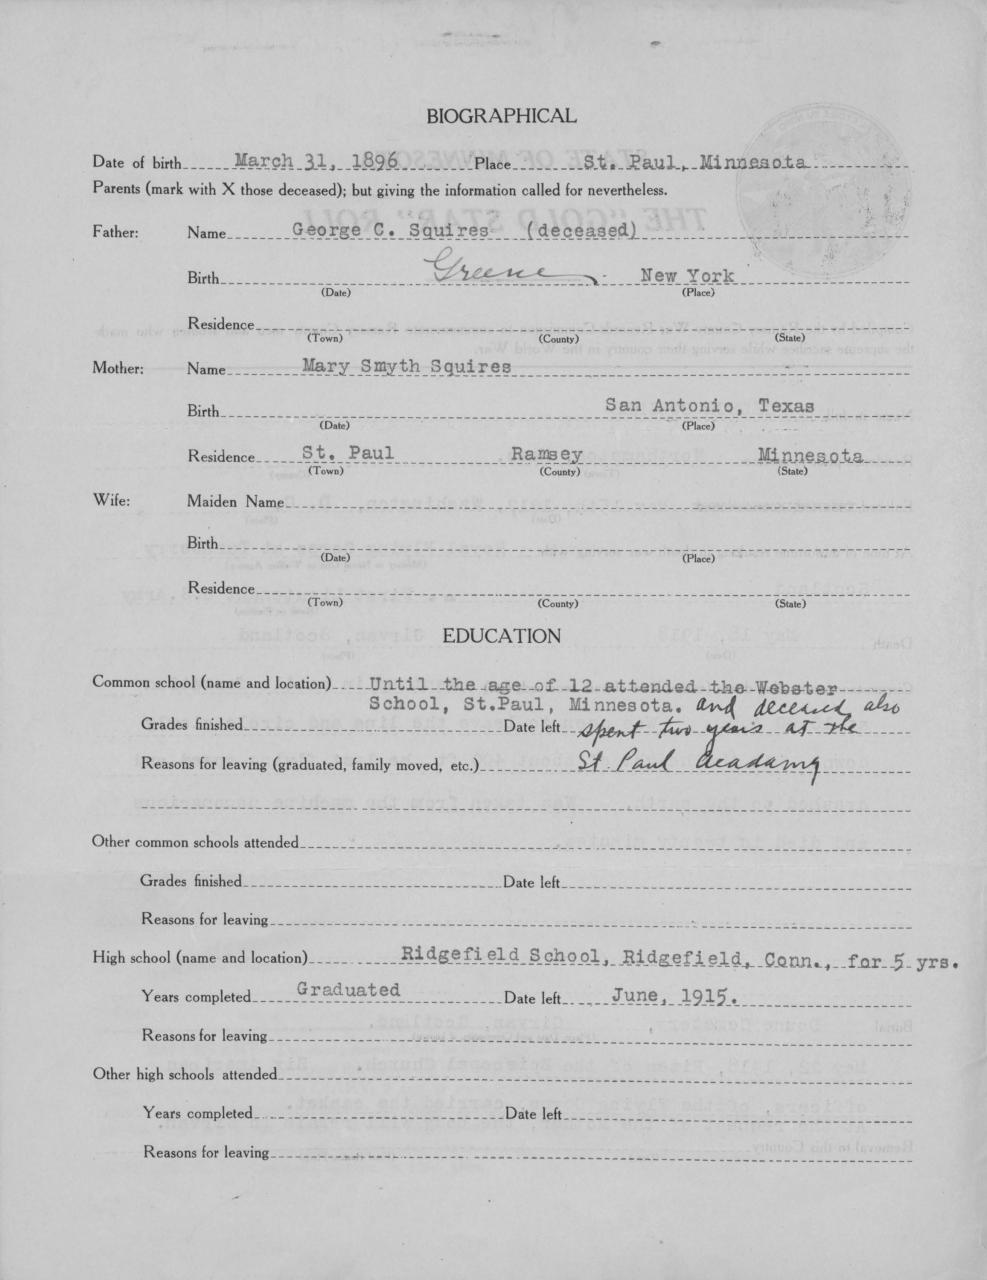 BIOGRAPHICAL
Date of birth March 31, 1896 Place St. Paul, Minnesota
Parents (mark with X those deceased); but giving the information called for nevertheless.
THE "GOLD STAR" ROLL
Father: Name George C. Squires (deceased)
Birth Greene New York
(Date) (Place)
Residence
(Town) (County) (State)
Mother: Name Mary Smyth Squires
Birth San Antonio, Texas
(Date) (Place)
Residence St. Paul Ramsey Minnesota
(Town) (County) (State)
Wife: Maiden Name
Birth
(Date) (Place)
Residence
(Town) (County) (State)
EDUCATION
Common school (name and location) Until the age of 12 attended the Webster
School, St.Paul, Minnesota. and deceased also
Grades finished Date left spent two years at the
Reasons for leaving (graduated, family moved, etc.) St. Paul Acadamy
Other common schools attended
Grades finished Date left
Reasons for leaving
High school (name and location) Ridgefield School, Ridgefield, Conn., for 5 yrs.
Years completed Graduated Date left June, 1915.
Reasons for leaving
Other high schools attended
Years completed Date left
Reasons for leaving